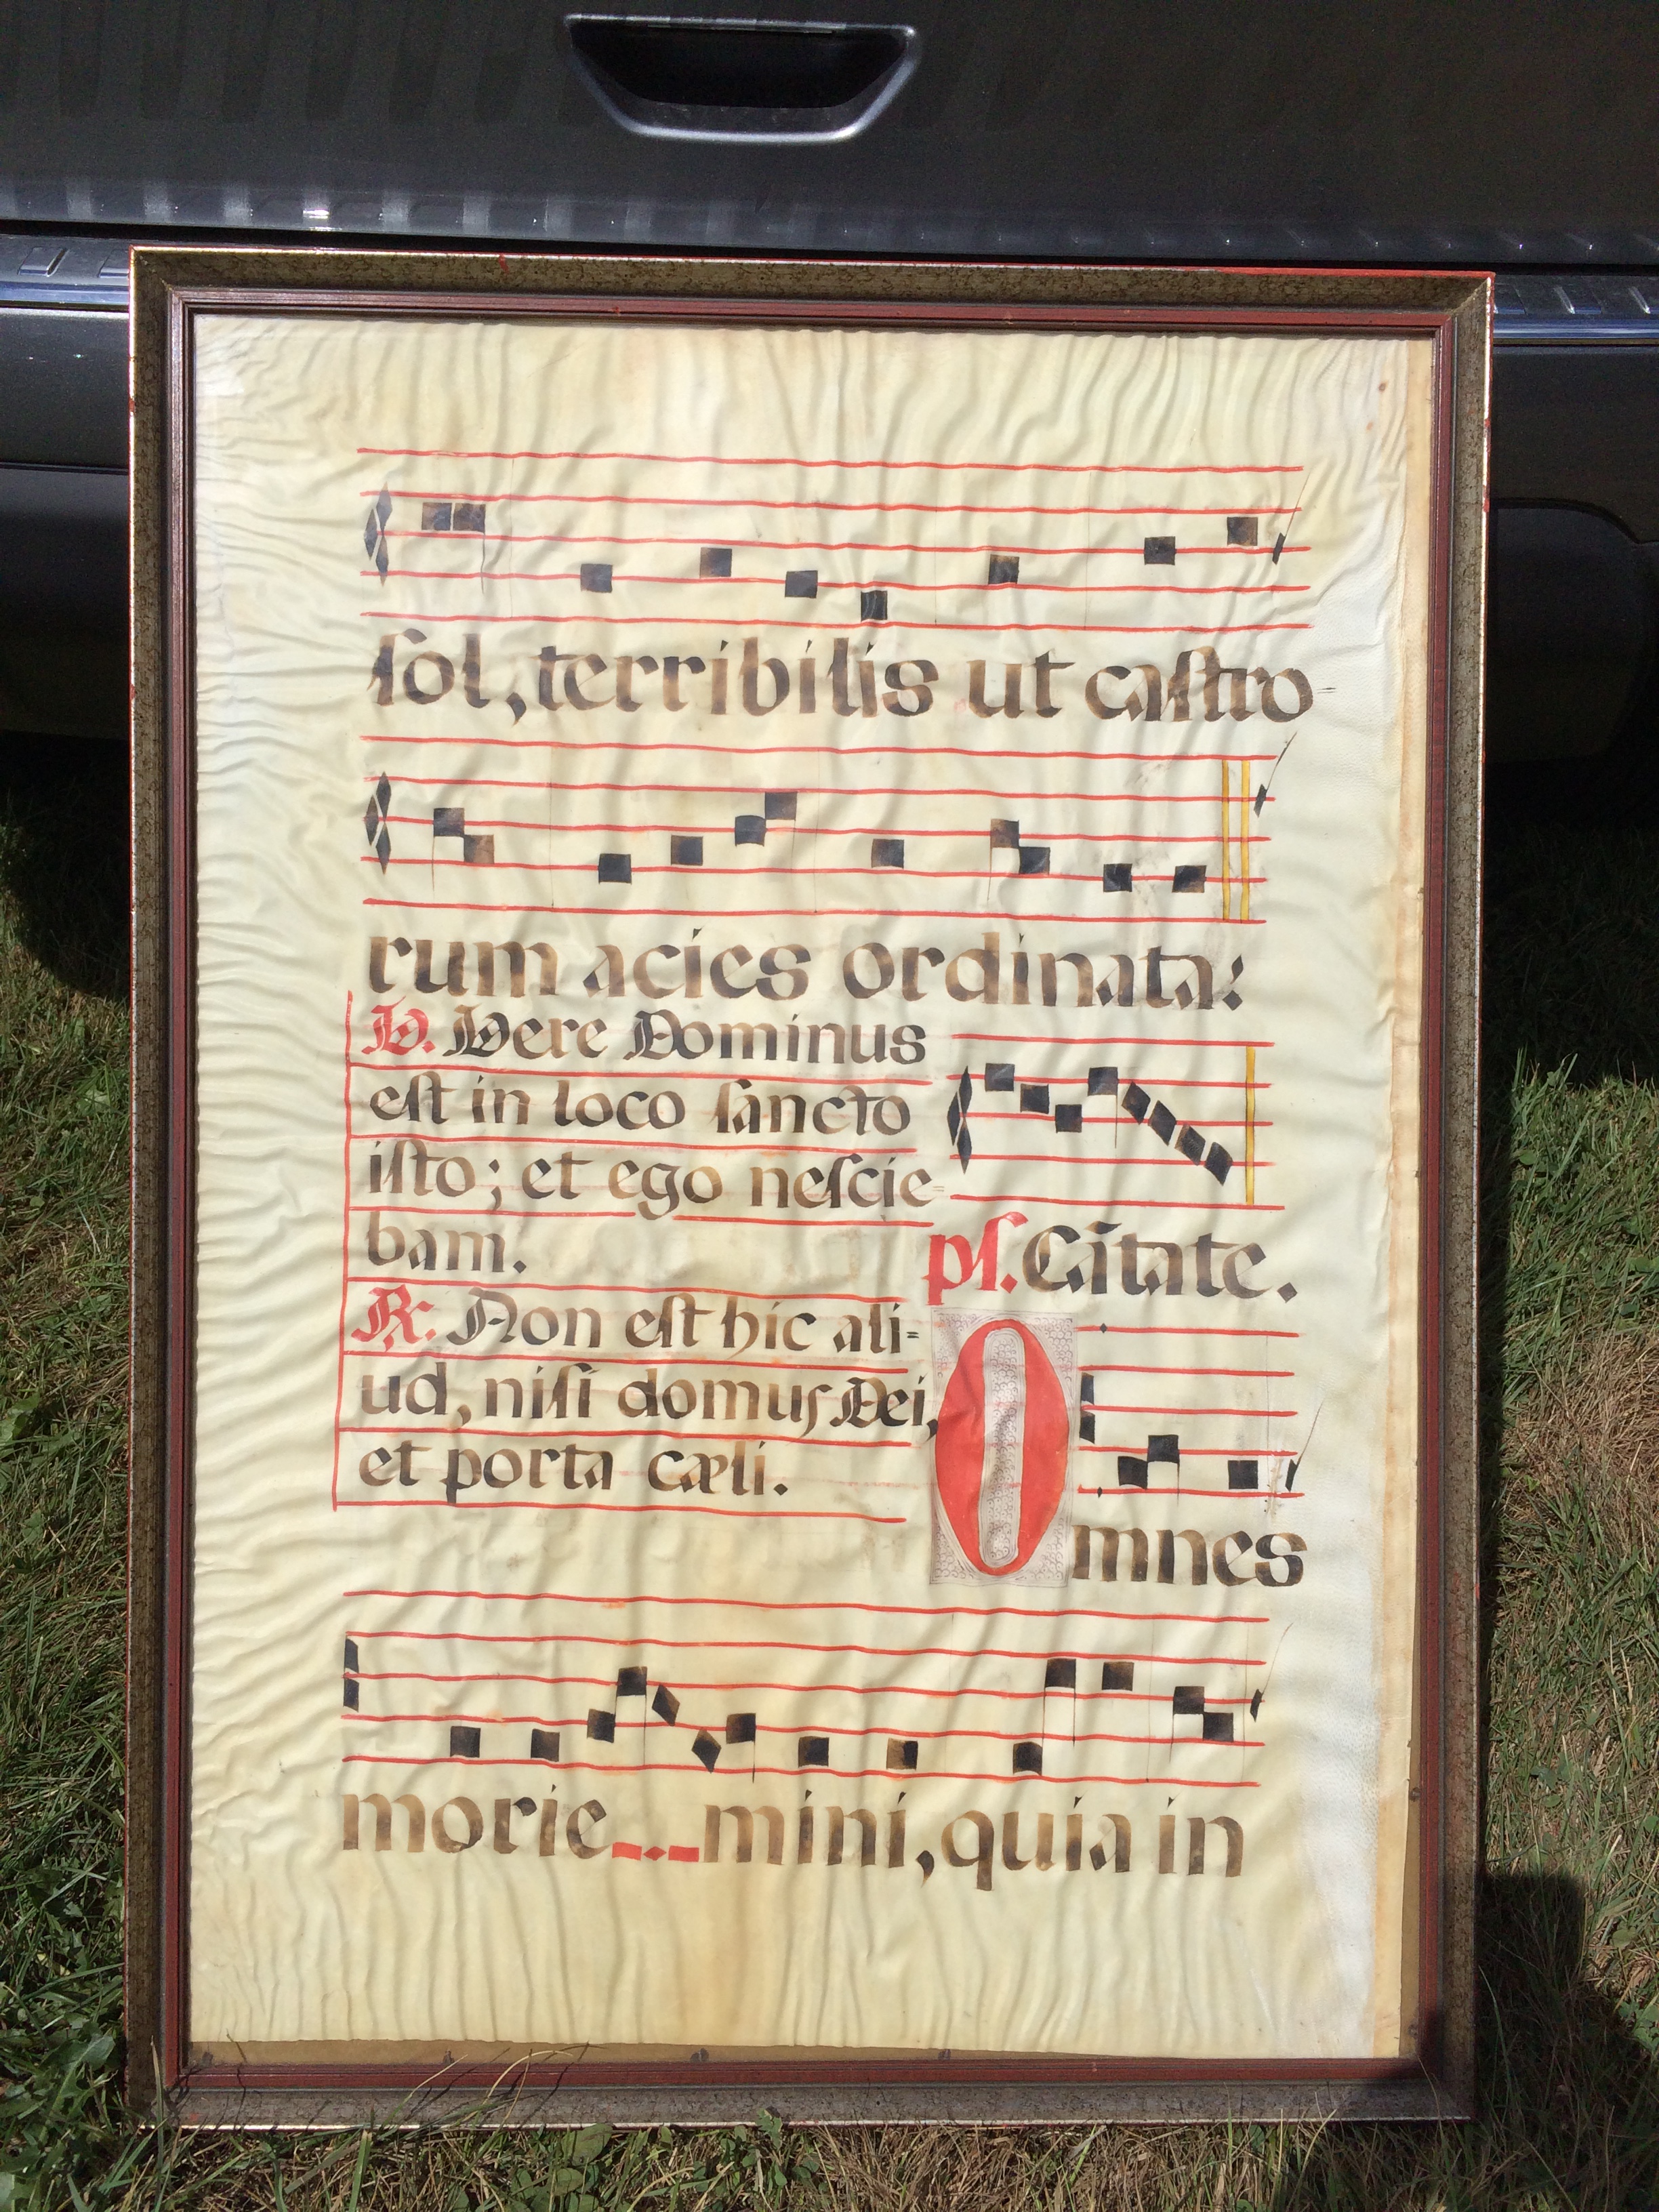 ſol, terribilis ut caſtro-
rum acies ordinata:
V. Vere Dominus
eſt in loco ſancto
iſto; et ego neſcie-
bam.
pſ. Cãtate.
R: Non eſt hic ali=
ud, niſi domus Dei,
et porta cæli.
Omnes
morie_._mini, quia in